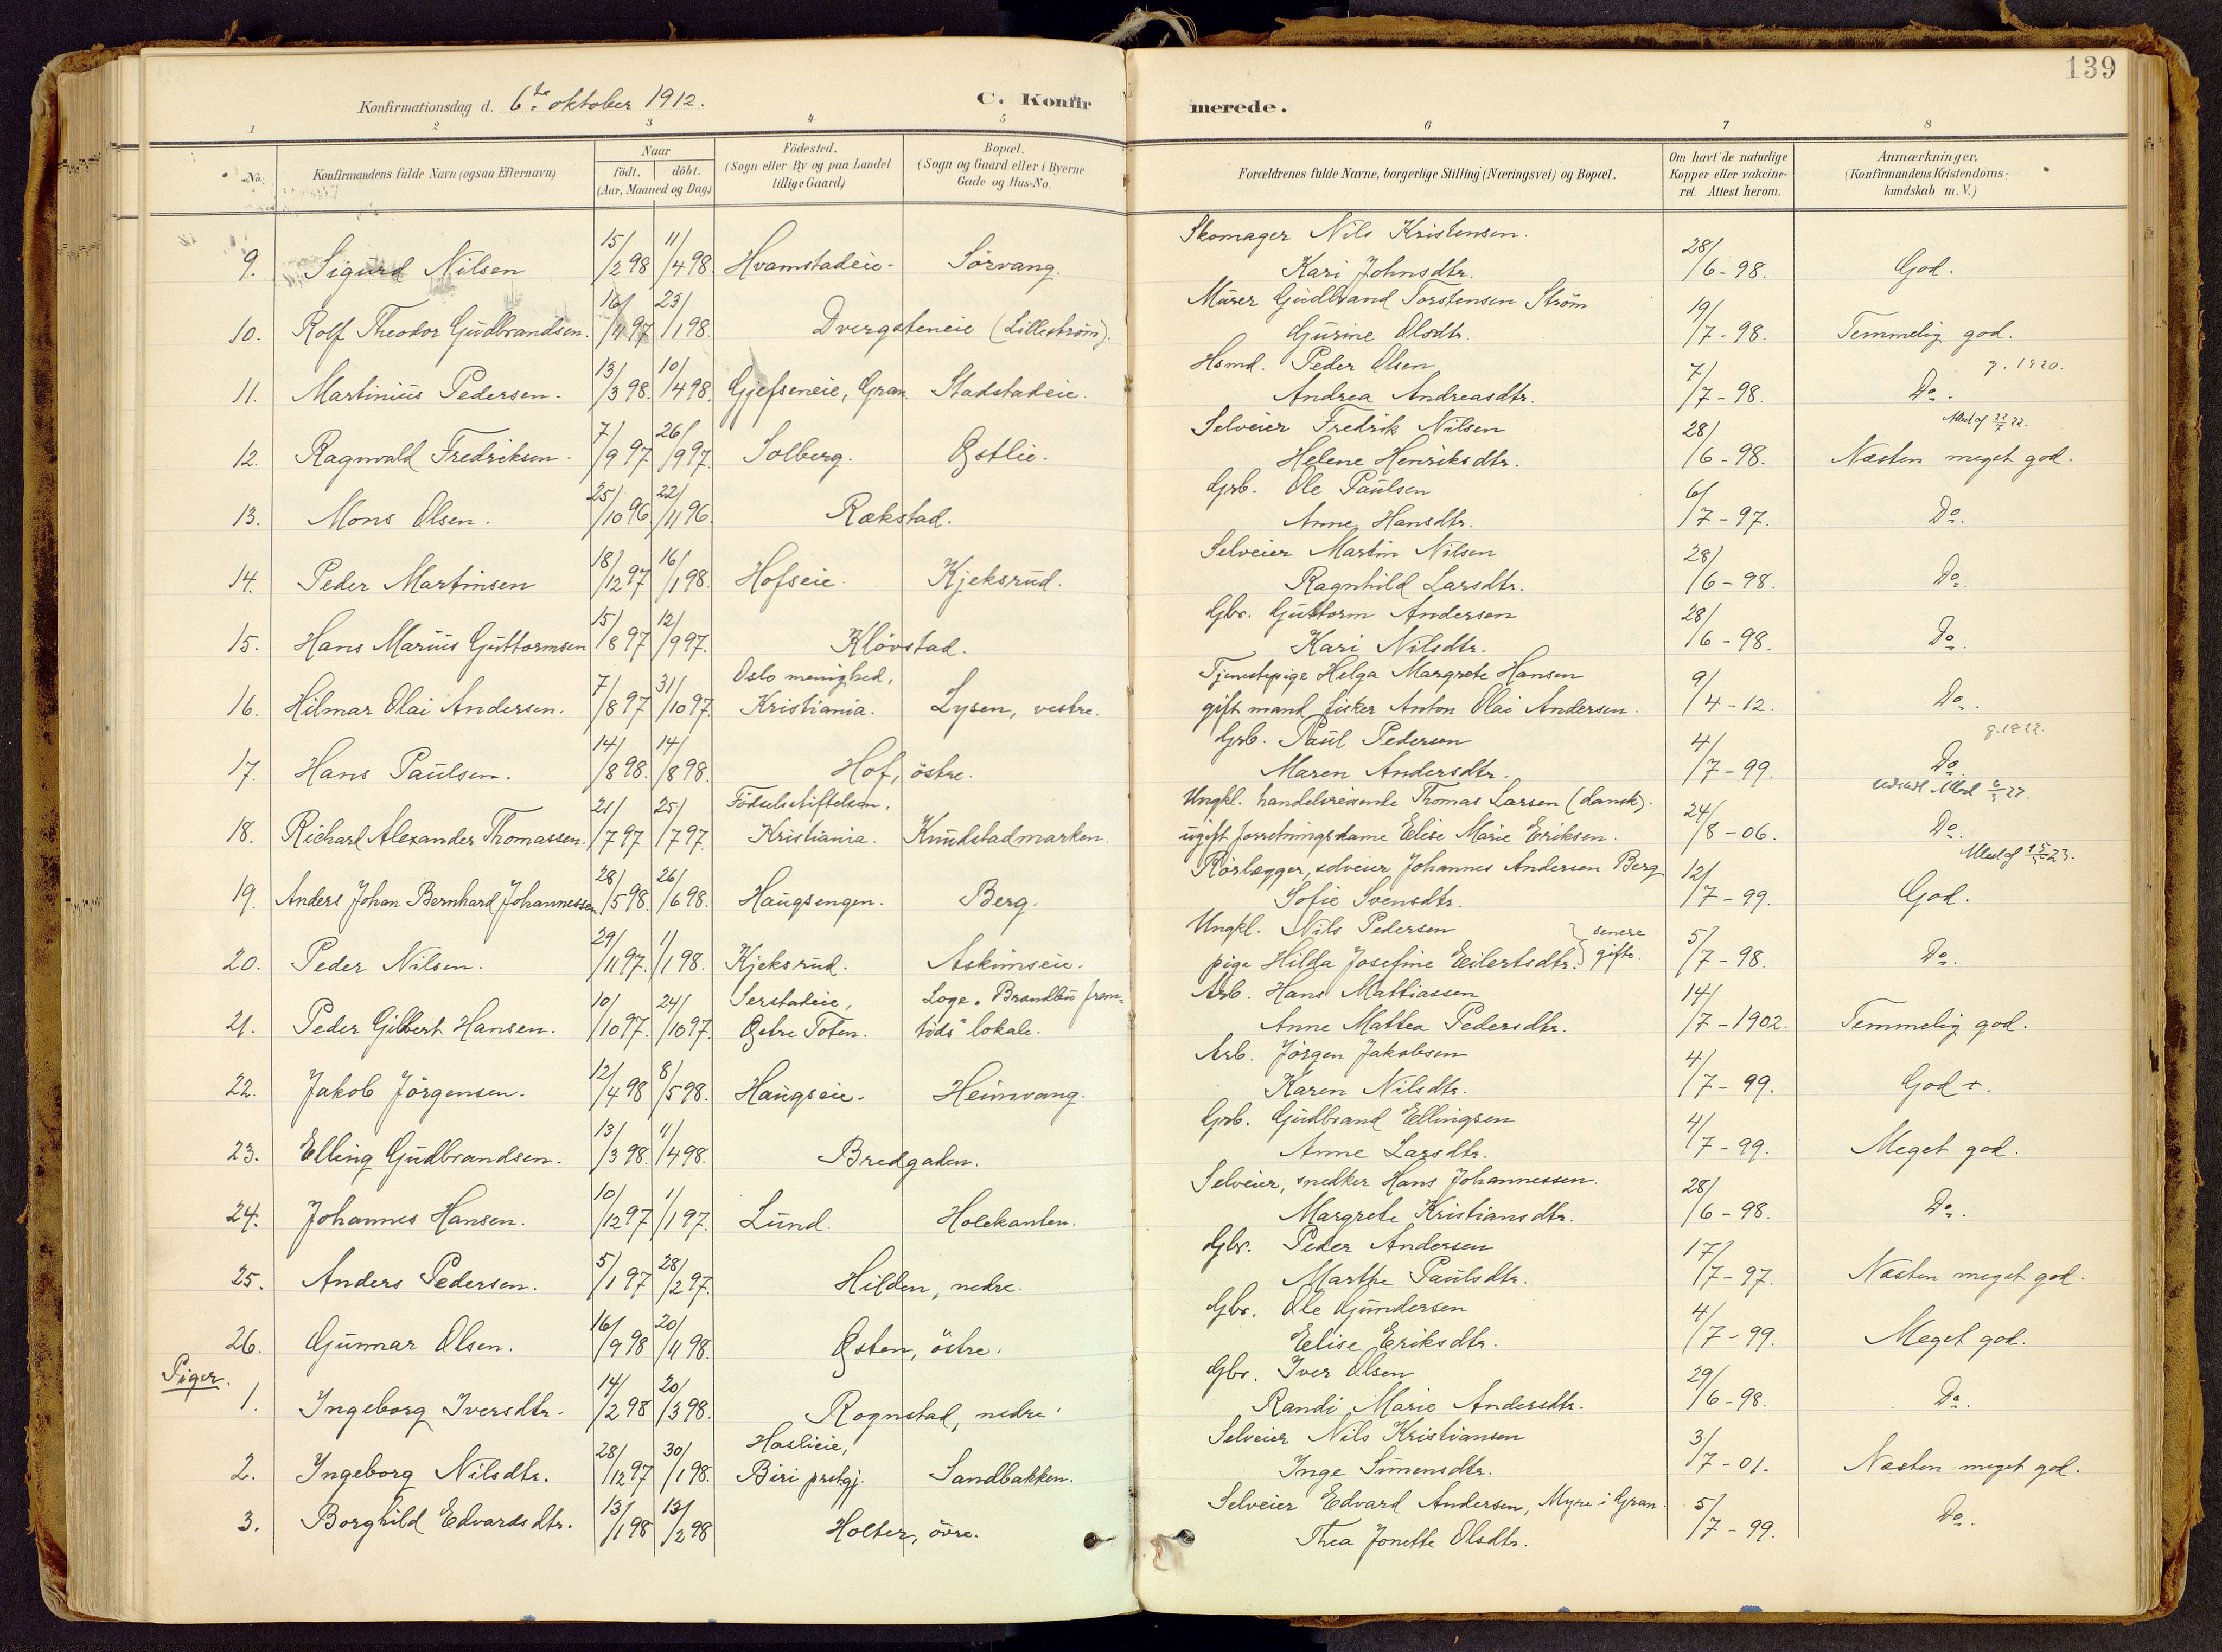 139
Konfirmationsdag d. 6te oktober 1912.
C. Konfirmerede.
1 2 3 4 5 6 7 8
No. Konfirmandens fulde Navn (ogsaa Efternavn) Naar födt. döbt. (Aar, Maaned og Dag) Födested. (Sogn eller By og paa Landet tillige Gaard) Bopæl. (Sogn og Gaard eller i Byerne Gade og Hus-No. Forældrenes fulde Navne, borgerlige Stilling (Næringsvei) og Bopæl. Om havt de naturlige Kopper eller vakcineret. Attest herom. Anmærkninger. (Konfirmandens Kristendomskundskab m. V.)
9. Sigurd Nilsen 15/2 98 11/4 98 Hvamstadeie. Sörvang. Skomager Nils Kristensen. Kari Johnsdtr. 28/6-98. God.
10. Rolf Theodor Gudbrandsen. 16/11 97 23/1 98. Dvergsteneie (Lilleström). Murer Gudbrand Torstensen Ström Gurine Olsdtr. 19/7-98. Temmelig god.
11. Martinius Pedersen. 13/3 98. 10/4 98. Gjefseneie, Gran Stadstadeie. Hsmd. Peder Olsen Andrea Andreasdtr. 7/7-98. Do. g. 1920.
12. Ragnvald Fredriksen. 7/9 97 26/9 97. Solberg. Østlie. Selveier Fredrik Nilsen Helene Henriksdtr. 28/6-98. Næsten meget god.
13. Mons Olsen. 25/10 96. 22/11 96. Rækstad. Grb. Ole Paulsen Anne Hansdtr. 6/7-97. Do.
14. Peder Martinsen 18/12 97 16/1 98. Hofseie. Kjeksrud. Selveier Martin Nilsen Ragnhild Larsdtr. 28/6-98. Do.
15. Hans Marius Guttormsen 15/8 97 12/9 97. Klövstad. Gbr. Guttorm Andersen Kari Nilsdtr. 28/6-98. Do.
16. Hilmar Olai Andersen. 7/8 97 31/10 97. Oslo menighed, Kristiania. Lysen, vestre. Tjenestepige Helga Margrete Hansen gift mand fisker Anton Olai Andersen. 9/4-12. Do.
17. Hans Paulsen. 14/8 98. 14/8 98. Hof, östre. Grb. Paul Pedersen Maren Andersdtr. 4/7-99. Do. g. 1922.
18. Richard Alexander Thomassen. 21/7 97 25/7 97. Födselsstiftelsen, Kristiania. Knudstadmarken. Ungkl. handelsreisende Thomas Larsen (dansk). ugift forretningsdame Elise Marie Eriksen. 24/8-06. Do.
19. Anders Johan Bernhard Johannessen. 28/5 98. 26/6 98. Haugsengen. Berg. Rörlægger, selveier Johannes Andersen Berg Sofie Svensdtr. 12/7-99. God.
20. Peder Nilsen. 29/11 97. 1/1 98. Kjeksrud. Askimseie. Ungkl. Nils Pedersen pige Hilda Josefine Eilertsdtr. senere gifte. 5/7-98. Do.
21. Peder Gilbert Hansen. 10/10 97. 24/10 97. Serstadeie, Østre Toten. Loge „Brandbu fremtids" lokale. Arb. Hans Mattiassen Anne Mattea Pedersdtr. 14/7-1902. Temmelig god.
22. Jakob Jörgensen. 12/4 98 8/5 98. Haugseie. Heimvang. Arb. Jörgen Jakobsen Karen Nilsdtr. 4/7-99. God +.
23. Elling Gudbrandsen. 13/3 98. 11/4 98. Bredgaden. Grb. Gudbrand Ellingsen Anne Larsdtr. 4/7-99. Meget god.
24. Johannes Hansen. 10/12 97 1/1 97. Lund. Holekanten. Selveier, snedker Hans Johannessen. Margrete Kristiansdtr. 28/6-98. Do.
25. Anders Pedersen. 5/1 97 28/2 97. Hilden, nedre. Gbr. Peder Andersen Marthe Paulsdtr. 17/7-97. Næsten meget god.
26. Gunnar Olsen. 16/9 98 20/11 98. Østen, östre. Gbr. Ole Gundersen Eelise Eriksdtr. 4/7-99. Meget god.
Piger.
1. Ingeborg Iversdtr. 14/2 98 20/3 98. Rognstad, nedre. Gbr. Iver Olsen Randi Marie Andersdtr. 29/6-98. Do.
2. Ingeborg Nilsdtr. 28/12 97 30/1 98. Haslieie, Biri prstgj. Sandbakken. Selveier Nils Kristiansen Inge Simensdtr. 3/7-01. Næsten meget god.
3. Borghild Edvardsdtr. 13/1 98 13/2 98 Holter, övre. Selveier Edvard Andersen, Myre i Gran. Thea Jonette Olsdtr. 5/7-99. Do.